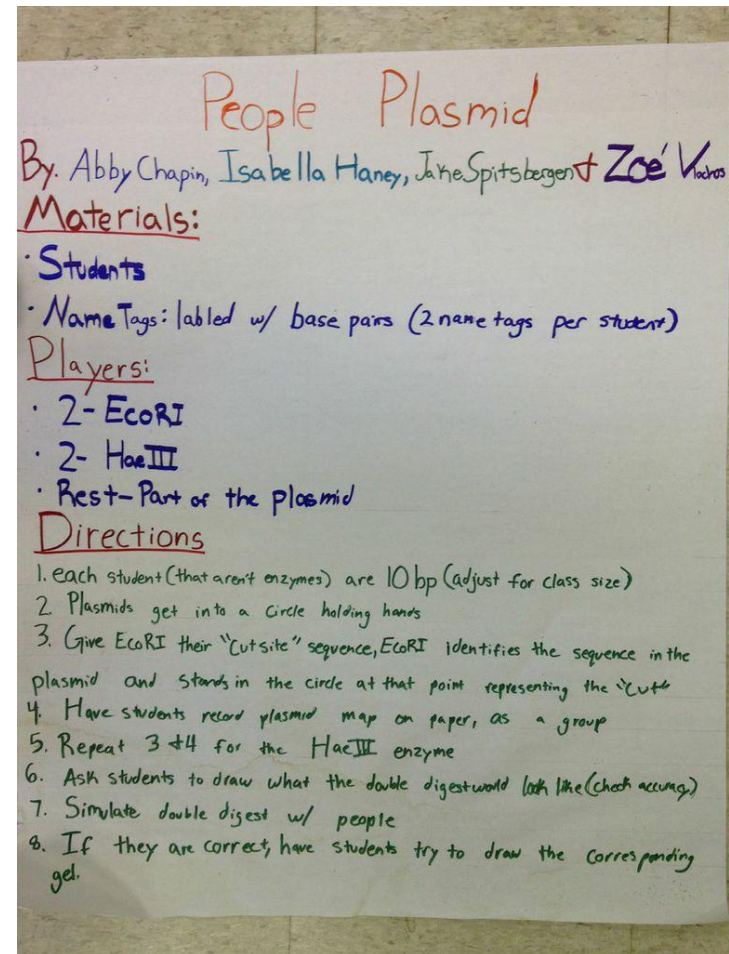 People Plasmid
By. Abby Chapin, Isabella Haney, Jake Spitsbergen + Zoé Vlachos
Materials:
· Students
· Name Tags: labled w/ base pairs (2 name tags per student)
Players:
· 2- EcoRI
· 2- HaeIII
· Rest-Part of the plasmid
Directions
1. each student (that aren't enzymes) are 10 bp (adjust for class size)
2 Plasmids get into a circle holding hands
3. Give EcoRI their "Cutsite" sequence, EcoRI identifies the sequence in the
plasmid and stands in the circle at that point representing the "cut"
4. Have students record plasmid map on paper, as a group
5. Repeat 3 +4 for the HaeIII enzyme
6. Ask students to draw what the double digest would look like (check accuracy)
7. Simulate double digest w/ people
8. If they are correct, have students try to draw the corresponding
gel.